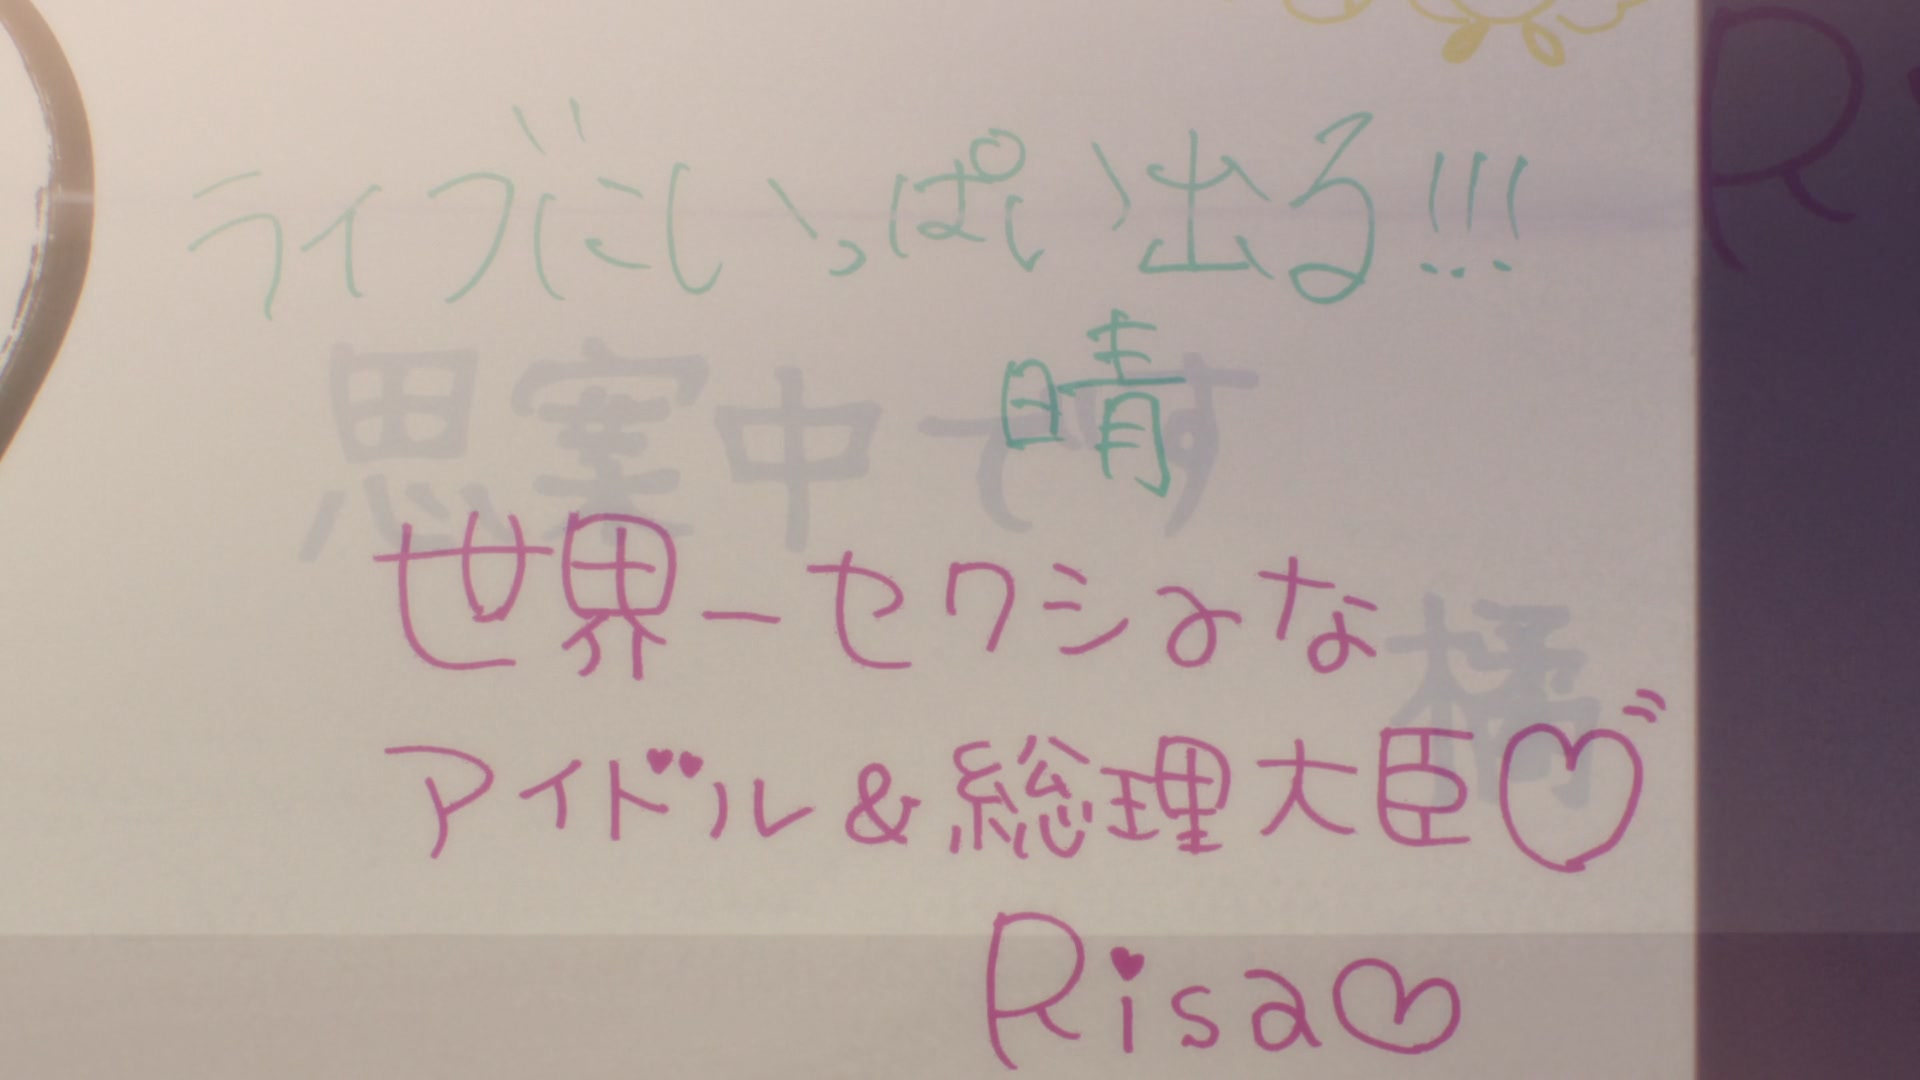 ライブにいっぱい出る!!!
晴
思案中です
世界一セクシーな
橘
アイドル&総理大臣♡
Risa♡
R